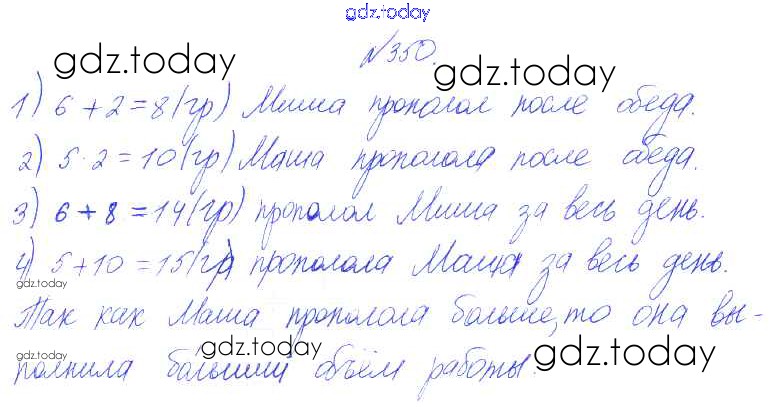 gdz.today
№350.
gdz.today gdz.today
1) 6 + 2 = 8 (гр) Миша прополол после обеда.
2) 5 · 2 = 10 (гр) Маша прополола после обеда.
3) 6 + 8 = 14 (гр) прополол Миша за весь день.
4) 5 + 10 = 15 (гр) прополола Маша за весь день.
gdz.today
Так как Маша прополола больше, то она вы-
gdz.today gdz.today gdz.today
полнила больший объём работы.